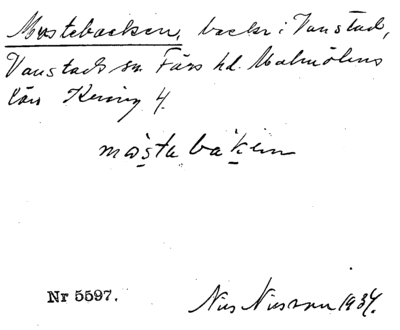 Mostebacken, backe i Vanstad,
Vanstads sn. Färs hd. Malmöhus
län Kering 4.
mo̊sta båken
Nr 5597.
Nils Nilsson 1934.